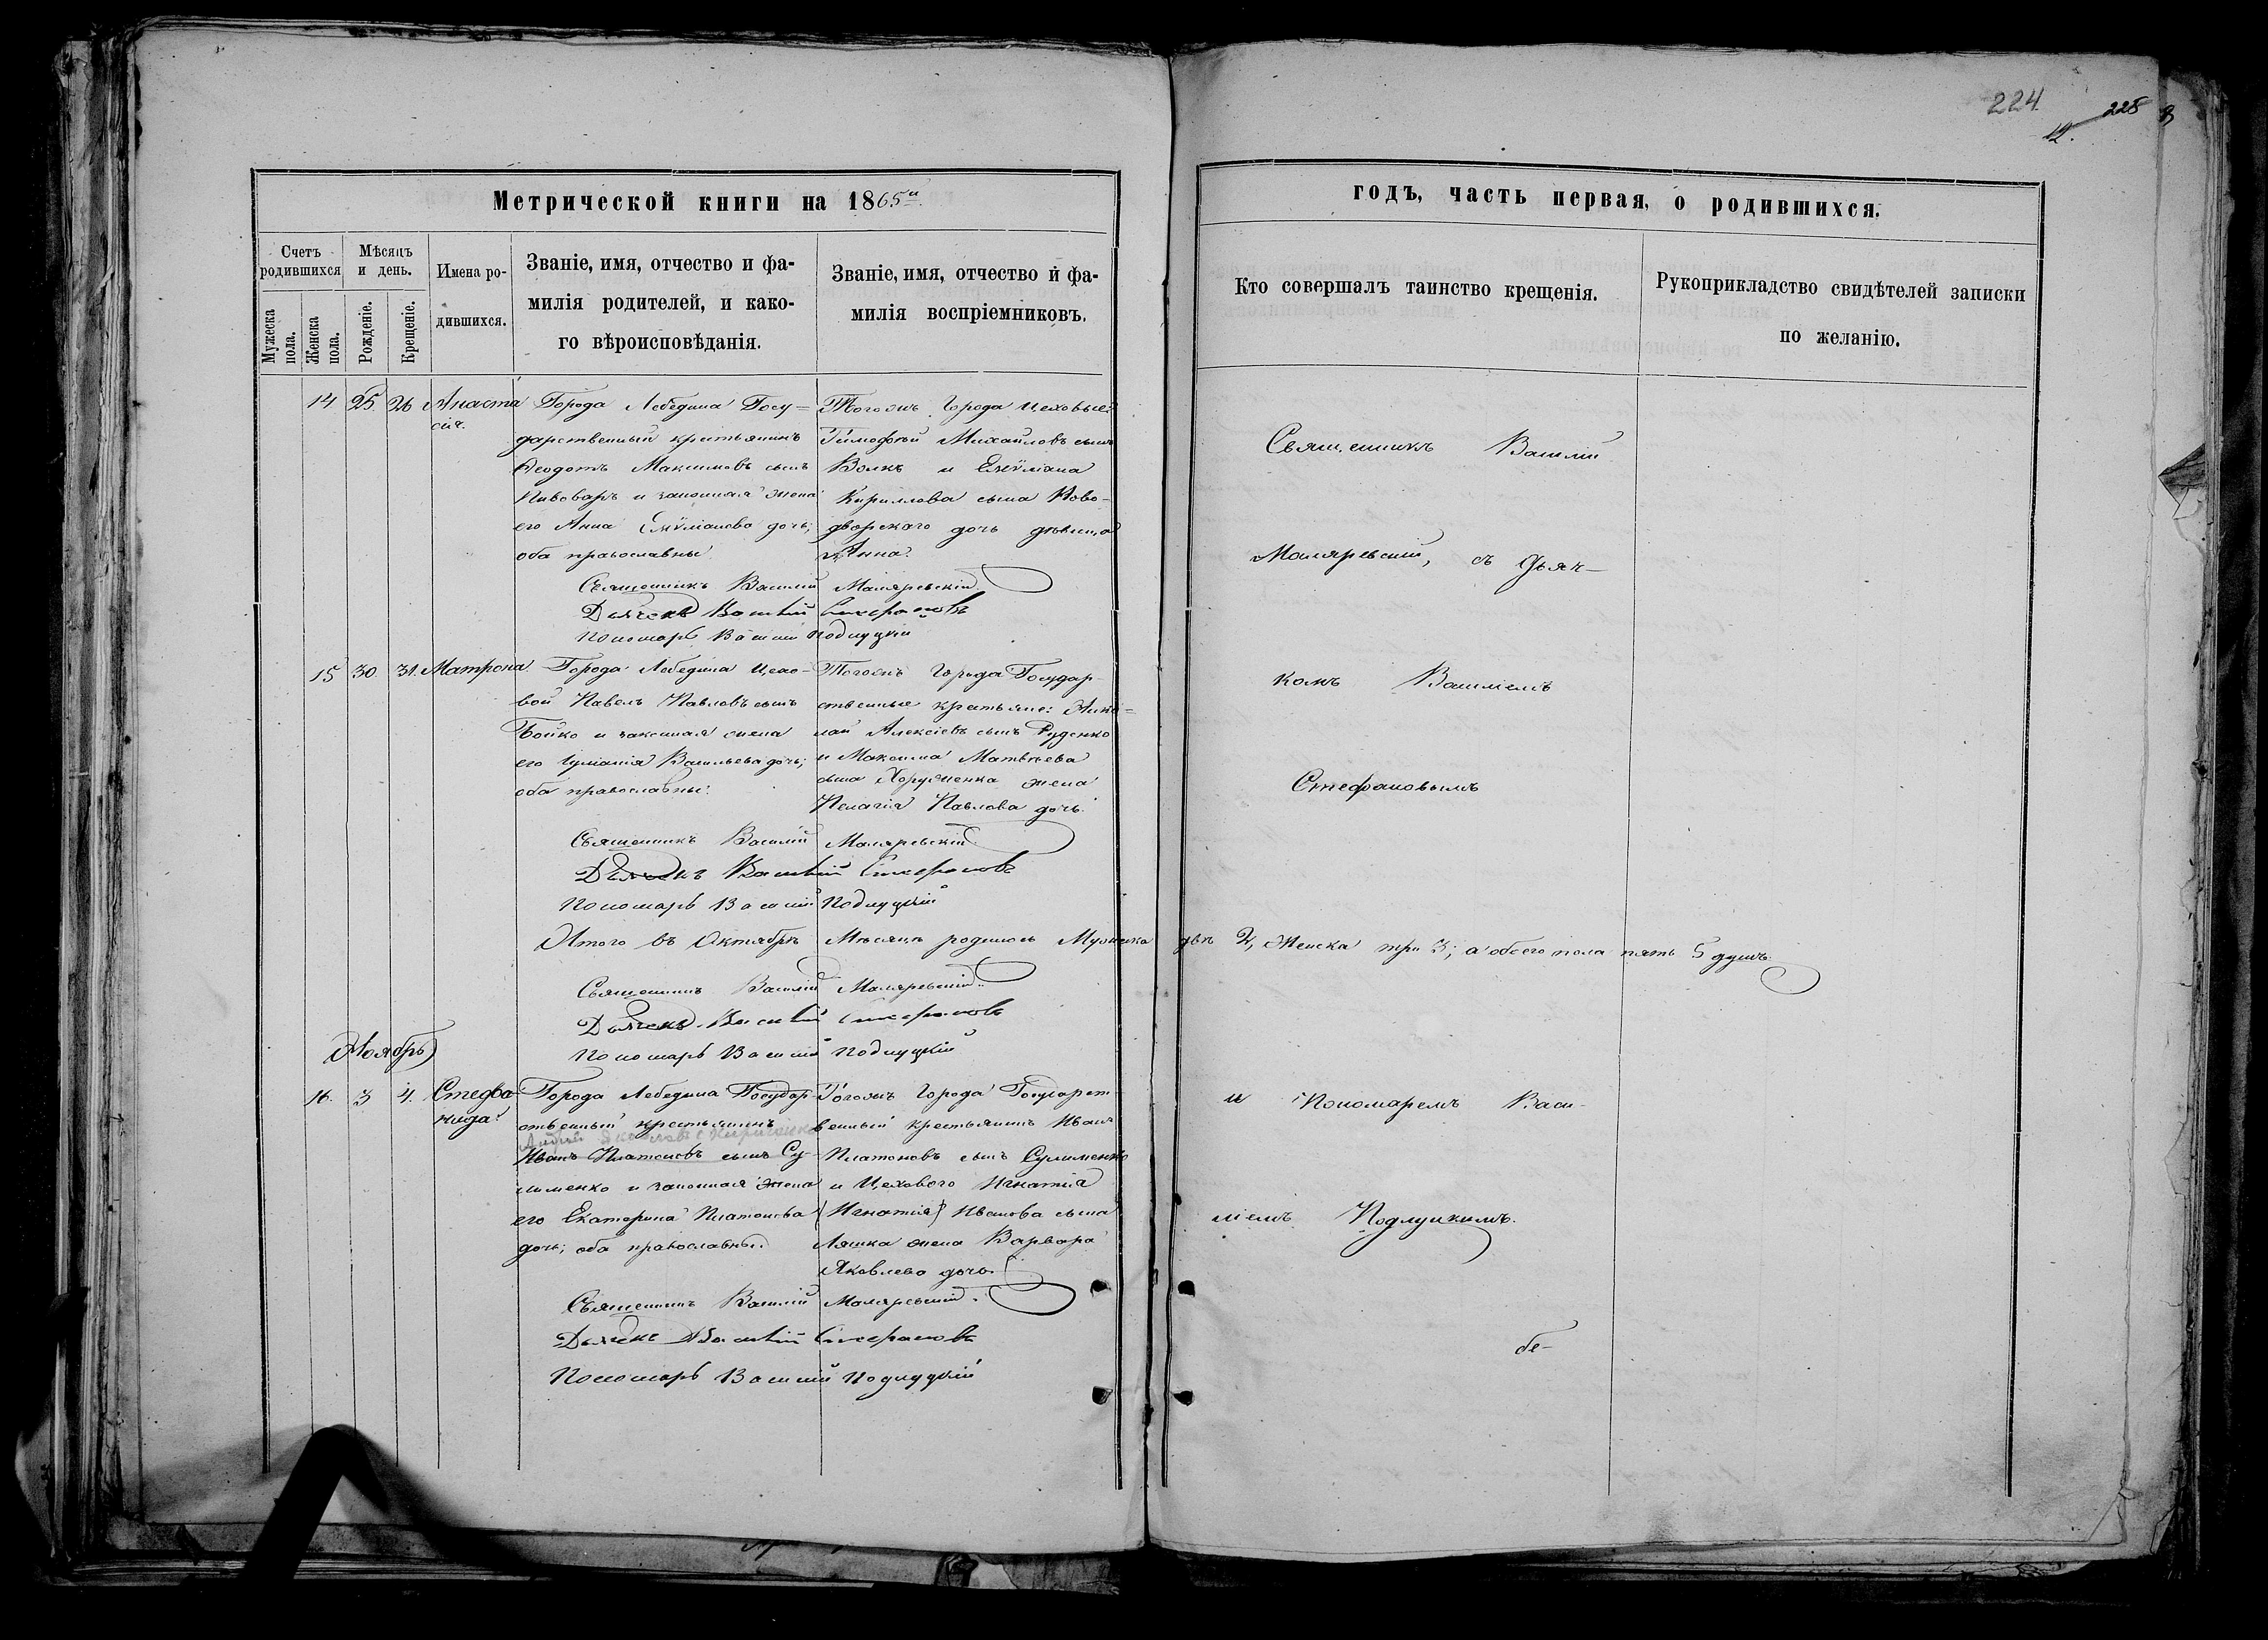 224.
228
12.
Метрической книги на 1865й
годъ, часть первая, о родившихся.
Счетъ родившихся
Мѣсяцъ и день.
Имена родившихся.
Званіе, имя, отчество и фамилія родителей, и какого вѣроисповѣданія.
Званіе, имя, отчество и фамилія воспріемниковъ.
Мужеска пола.
Женска пола.
Рожденіе.
Крещеніе.
Кто совершалъ таинство крещенія.
Рукоприкладство свидѣтелей записки по желанію.
14 25. 26 Анаста
сія.
Города Лебедина Госу=
дарственный крестьянинъ
Ѳеодотъ Максимовъ сынъ
Пивоваръ и законная жена
его Анна Емѵліанова дочь;
оба православны.
Тогожъ Города цеховые:
Тимоѳей Михайловъ сынъ
Волкъ и Емѵліана
Кириллова сына Ново-
дворскаго дочь дѣвица
Анна.
Священникъ Василій Маляревскій
Дьячекъ Василій Стефановъ
Пономарь Василій Подлуцкій
15 30. 31. Матрона
Города Лебедина Цехо-
вой Павелъ Павловъ сынъ
Бойко и законная жена
его Іуліанія Васильева дочь;
оба православны.
Тогожъ Города Государ-
ственные крестьяне: Нико=
лай Алексіевъ сынъ Руденко
и Максима Матвѣева
сына Хоруженка жена
Пелагія Павлова дочь.
Священникъ Василій Маляревскій
Дьячекъ Василій Стефановъ
Пономарь Василій Подлуцкій
Итого въ Октябрѣ Мѣсяцѣ родилось Мужеска двѣ 2, Женска три 3; а обоего пола пять 5 душъ.
Священникъ Василій Маляревскій
Дьячекъ Василій Стефановъ
Пономарь Василій Подлуцкій
Ноябрь
16. 3 4. Стефа
нида.
Города Лебедина Государ-
ственный крестьянинъ
Иванъ Платоновъ сынъ Су-
лименко и законная жена
его Екатерина Платонова
дочь; оба православны.
Тогожъ Города Государст-
венный крестьянинъ Иванъ
Платоновъ сынъ Сулименко
и Цеховаго Игнатія
(Игнатія) Иванова сына
Ляшка жена Варвара
Яковлева дочь.
Священникъ Василій Маляревскій.
Дьячекъ Василій Стефановъ
Пономарь Василій Подлуцкій
Священникъ Василій
Маляревскій, съ Дьяч-
комъ Василіемъ
Стефановымъ
и Пономаремъ Васи-
ліемъ Подлуцкимъ.
бе-